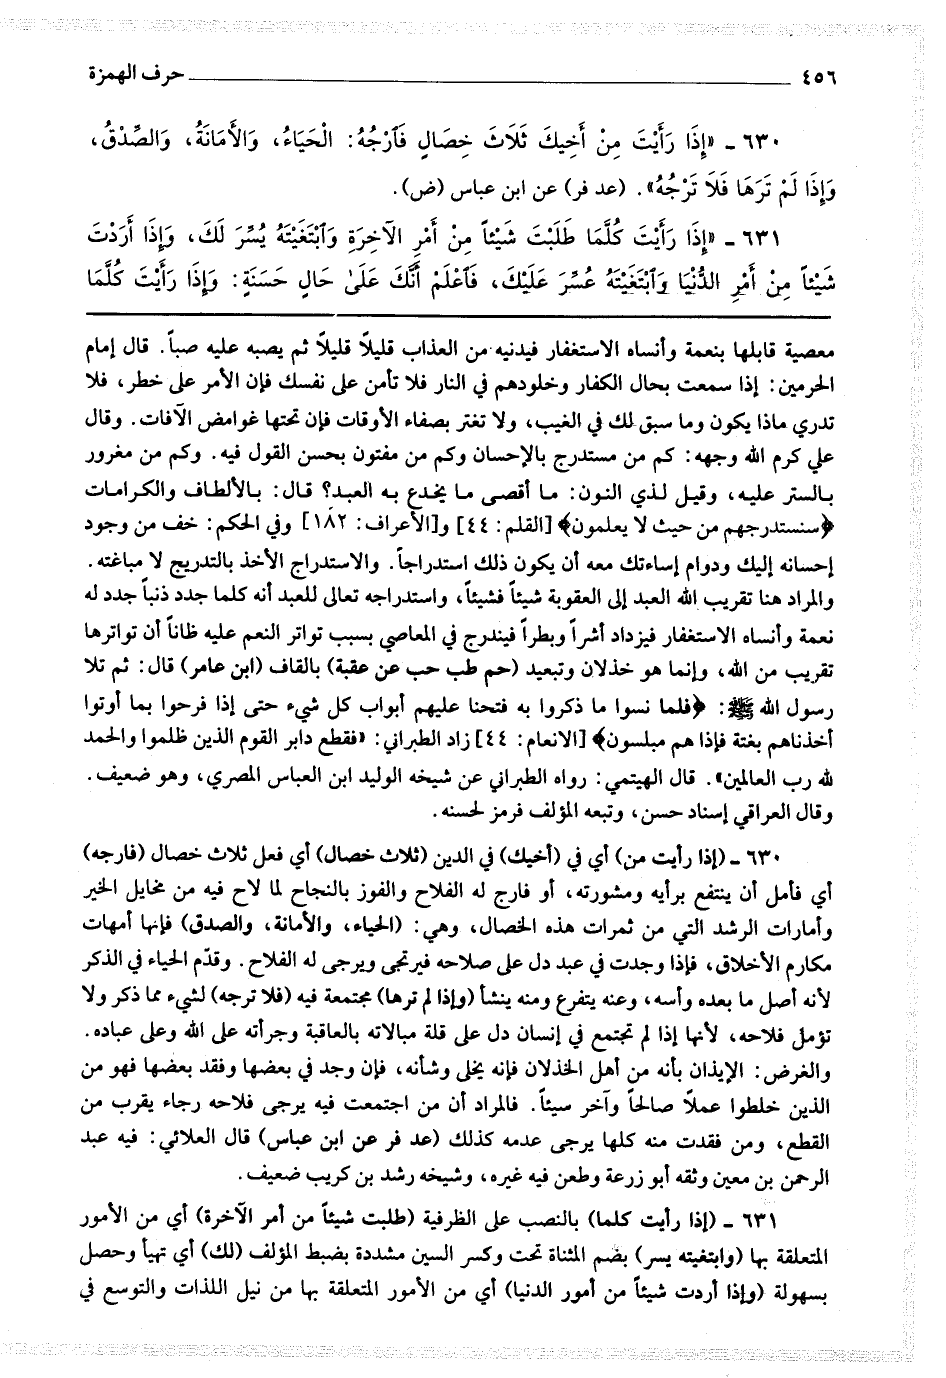 ٤٥٦ ـــــــــــــــــــــــــــــــــــــــــــــــــــ حرف الهمزة
٦٣٠ ـ «إِذَا رَأَيْتَ مِنْ أَخِيكَ ثَلَاثَ خِصَالٍ فَآرْجُهُ: الْحَيَاءُ، وَالْأَمَانَةُ، وَالصِّدْقُ،
وَإِذَا لَمْ تَرَهَا فَلَا تَرْجُهُ». (عد فر) عن ابن عباس (ض).
٦٣١ ـ «إِذَا رَأَيْتَ كُلَّمَا طَلَبْتَ شَيْئاً مِنْ أَمْرِ الآخِرَةِ وَٱبْتَغَيْتَهُ يُسِّرَ لَكَ، وَإِذَا أَرَدْتَ
شَيْئاً مِنْ أَمْرِ الدُّنْيَا وَٱبْتَغَيْتَهُ عُسِّرَ عَلَيْكَ، فَٱعْلَمْ أَنَّكَ عَلَىٰ حَالٍ حَسَنَةٍ: وَإِذَا رَأَيْتَ كُلَّمَا
معصية قابلها بنعمة وأنساه الاستغفار فيدنيه من العذاب قليلاً قليلاً ثم يصبه عليه صباً. قال إمام
الحرمين: إذا سمعت بحال الكفار وخلودهم في النار فلا تأمن على نفسك فإن الأمر على خطر، فلا
تدري ماذا يكون وما سبق لك في الغيب، ولا تغتر بصفاء الأوقات فإن تحتها غوامض الآفات. وقال
علي كرم الله وجهه: كم من مستدرج بالإحسان وكم من مفتون بحسن القول فيه. وكم من مغرور
بالستر عليه، وقيل لذي النون: ما أقصى ما يخدع به العبد؟ قال: بالألطاف والكرامات
﴿سنستدرجهم من حيث لا يعلمون﴾ [القلم: ٤٤] و[الأعراف: ١٨٢] وفي الحكم: خف من وجود
إحسانه إليك ودوام إساءتك معه أن يكون ذلك استدراجاً. والاستدراج الأخذ بالتدريج لا مباغته.
والمراد هنا تقريب الله العبد إلى العقوبة شيئاً فشيئاً، واستدراجه تعالى للعبد أنه كلما جدد ذنباً جدد له
نعمة وأنساه الاستغفار فيزداد أشراً وبطراً فيندرج في المعاصي بسبب تواتر النعم عليه ظاناً أن تواترها
تقريب من الله، وإنما هو خذلان وتبعيد (حم طب حب عن عقبة) بالقاف (ابن عامر) قال: ثم تلا
رسول الله ﷺ: ﴿فلما نسوا ما ذكروا به فتحنا عليهم أبواب كل شيء حتى إذا فرحوا بما أوتوا
أخذناهم بغتة فإذا هم مبلسون﴾ [الانعام: ٤٤] زاد الطبراني: «فقطع دابر القوم الذين ظلموا والحمد
لله رب العالمين». قال الهيتمي: رواه الطبراني عن شيخه الوليد ابن العباس المصري، وهو ضعيف.
وقال العراقي إسناد حسن، وتبعه المؤلف فرمز لحسنه.
٦٣٠ ـ (إذا رأيت من) أي في (أخيك) في الدين (ثلاث خصال) أي فعل ثلاث خصال (فارجه)
أي فأمل أن ينتفع برأيه ومشورته، أو فارج له الفلاح والفوز بالنجاح لما لاح فيه من مخايل الخير
وأمارات الرشد التي من ثمرات هذه الخصال، وهي: (الحياء، والأمانة، والصدق) فإنها أمهات
مكارم الأخلاق، فإذا وجدت في عبد دل على صلاحه فيرتجى ويرجى له الفلاح. وقدّم الحياء في الذكر
لأنه أصل ما بعده وأسه، وعنه يتفرع ومنه ينشأ (وإذا لم ترها) مجتمعة فيه (فلا ترجه) لشيء مما ذكر ولا
تؤمل فلاحه، لأنها إذا لم تجتمع في إنسان دل على قلة مبالاته بالعاقبة وجرأته على الله وعلى عباده.
والغرض: الإيذان بأنه من أهل الخذلان فإنه يخلى وشأنه، فإن وجد في بعضها وفقد بعضها فهو من
الذين خلطوا عملاً صالحاً وآخر سيئاً. فالمراد أن من اجتمعت فيه يرجى فلاحه رجاء يقرب من
القطع، ومن فقدت منه كلها يرجى عدمه كذلك (عد فر عن ابن عباس) قال العلائي: فيه عبد
الرحمن بن معين وثقه أبو زرعة وطعن فيه غيره، وشيخه رشد بن كريب ضعيف.
٦٣١ ـ (إذا رأيت كلما) بالنصب على الظرفية (طلبت شيئاً من أمر الآخرة) أي من الأمور
المتعلقة بها (وابتغيته يسر) بضم المثناة تحت وكسر السين مشددة بضبط المؤلف (لك) أي تهيأ وحصل
بسهولة (وإذا أردت شيئاً من أمور الدنيا) أي من الأمور المتعلقة بها من نيل اللذات والتوسع في